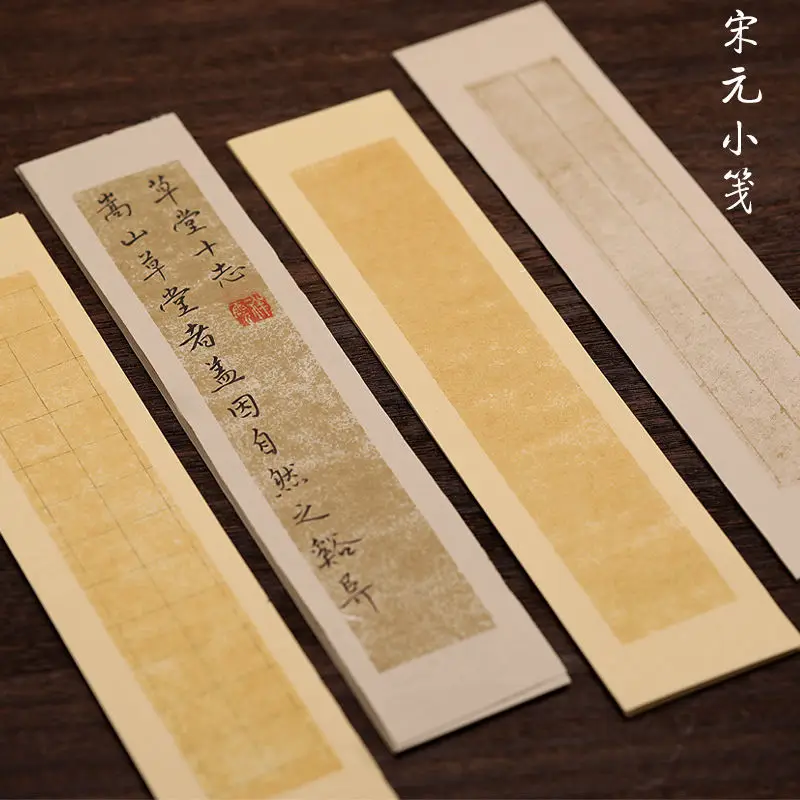 宋元小笺
草堂十志
嵩山草堂者盖因自然之谿阜